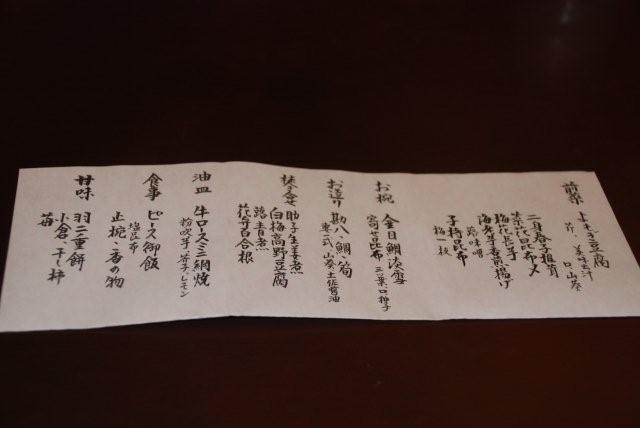 前菜 よもぎ豆腐
芥、美味出汁
口、山葵
菜花昆布〆
梅花長芋
海老芋香煎揚げ
蕗味噌
子持昆布
梅一枝
お椀 金目鯛淡雪
寄せ昆布 三つ葉 口柚子
お造り 勘八、鯛、筍
妻一式 山葵 土佐醤油
焚き合せ 助子生姜煮
白梅高野豆腐
蕗青煮
花弁百合根
油皿 牛ロースミニ網焼
粉吹芋 レモン
食事 ピース御飯
塩昆布
止椀、香の物
甘味 羽二重餅
小倉、干し柿
苺